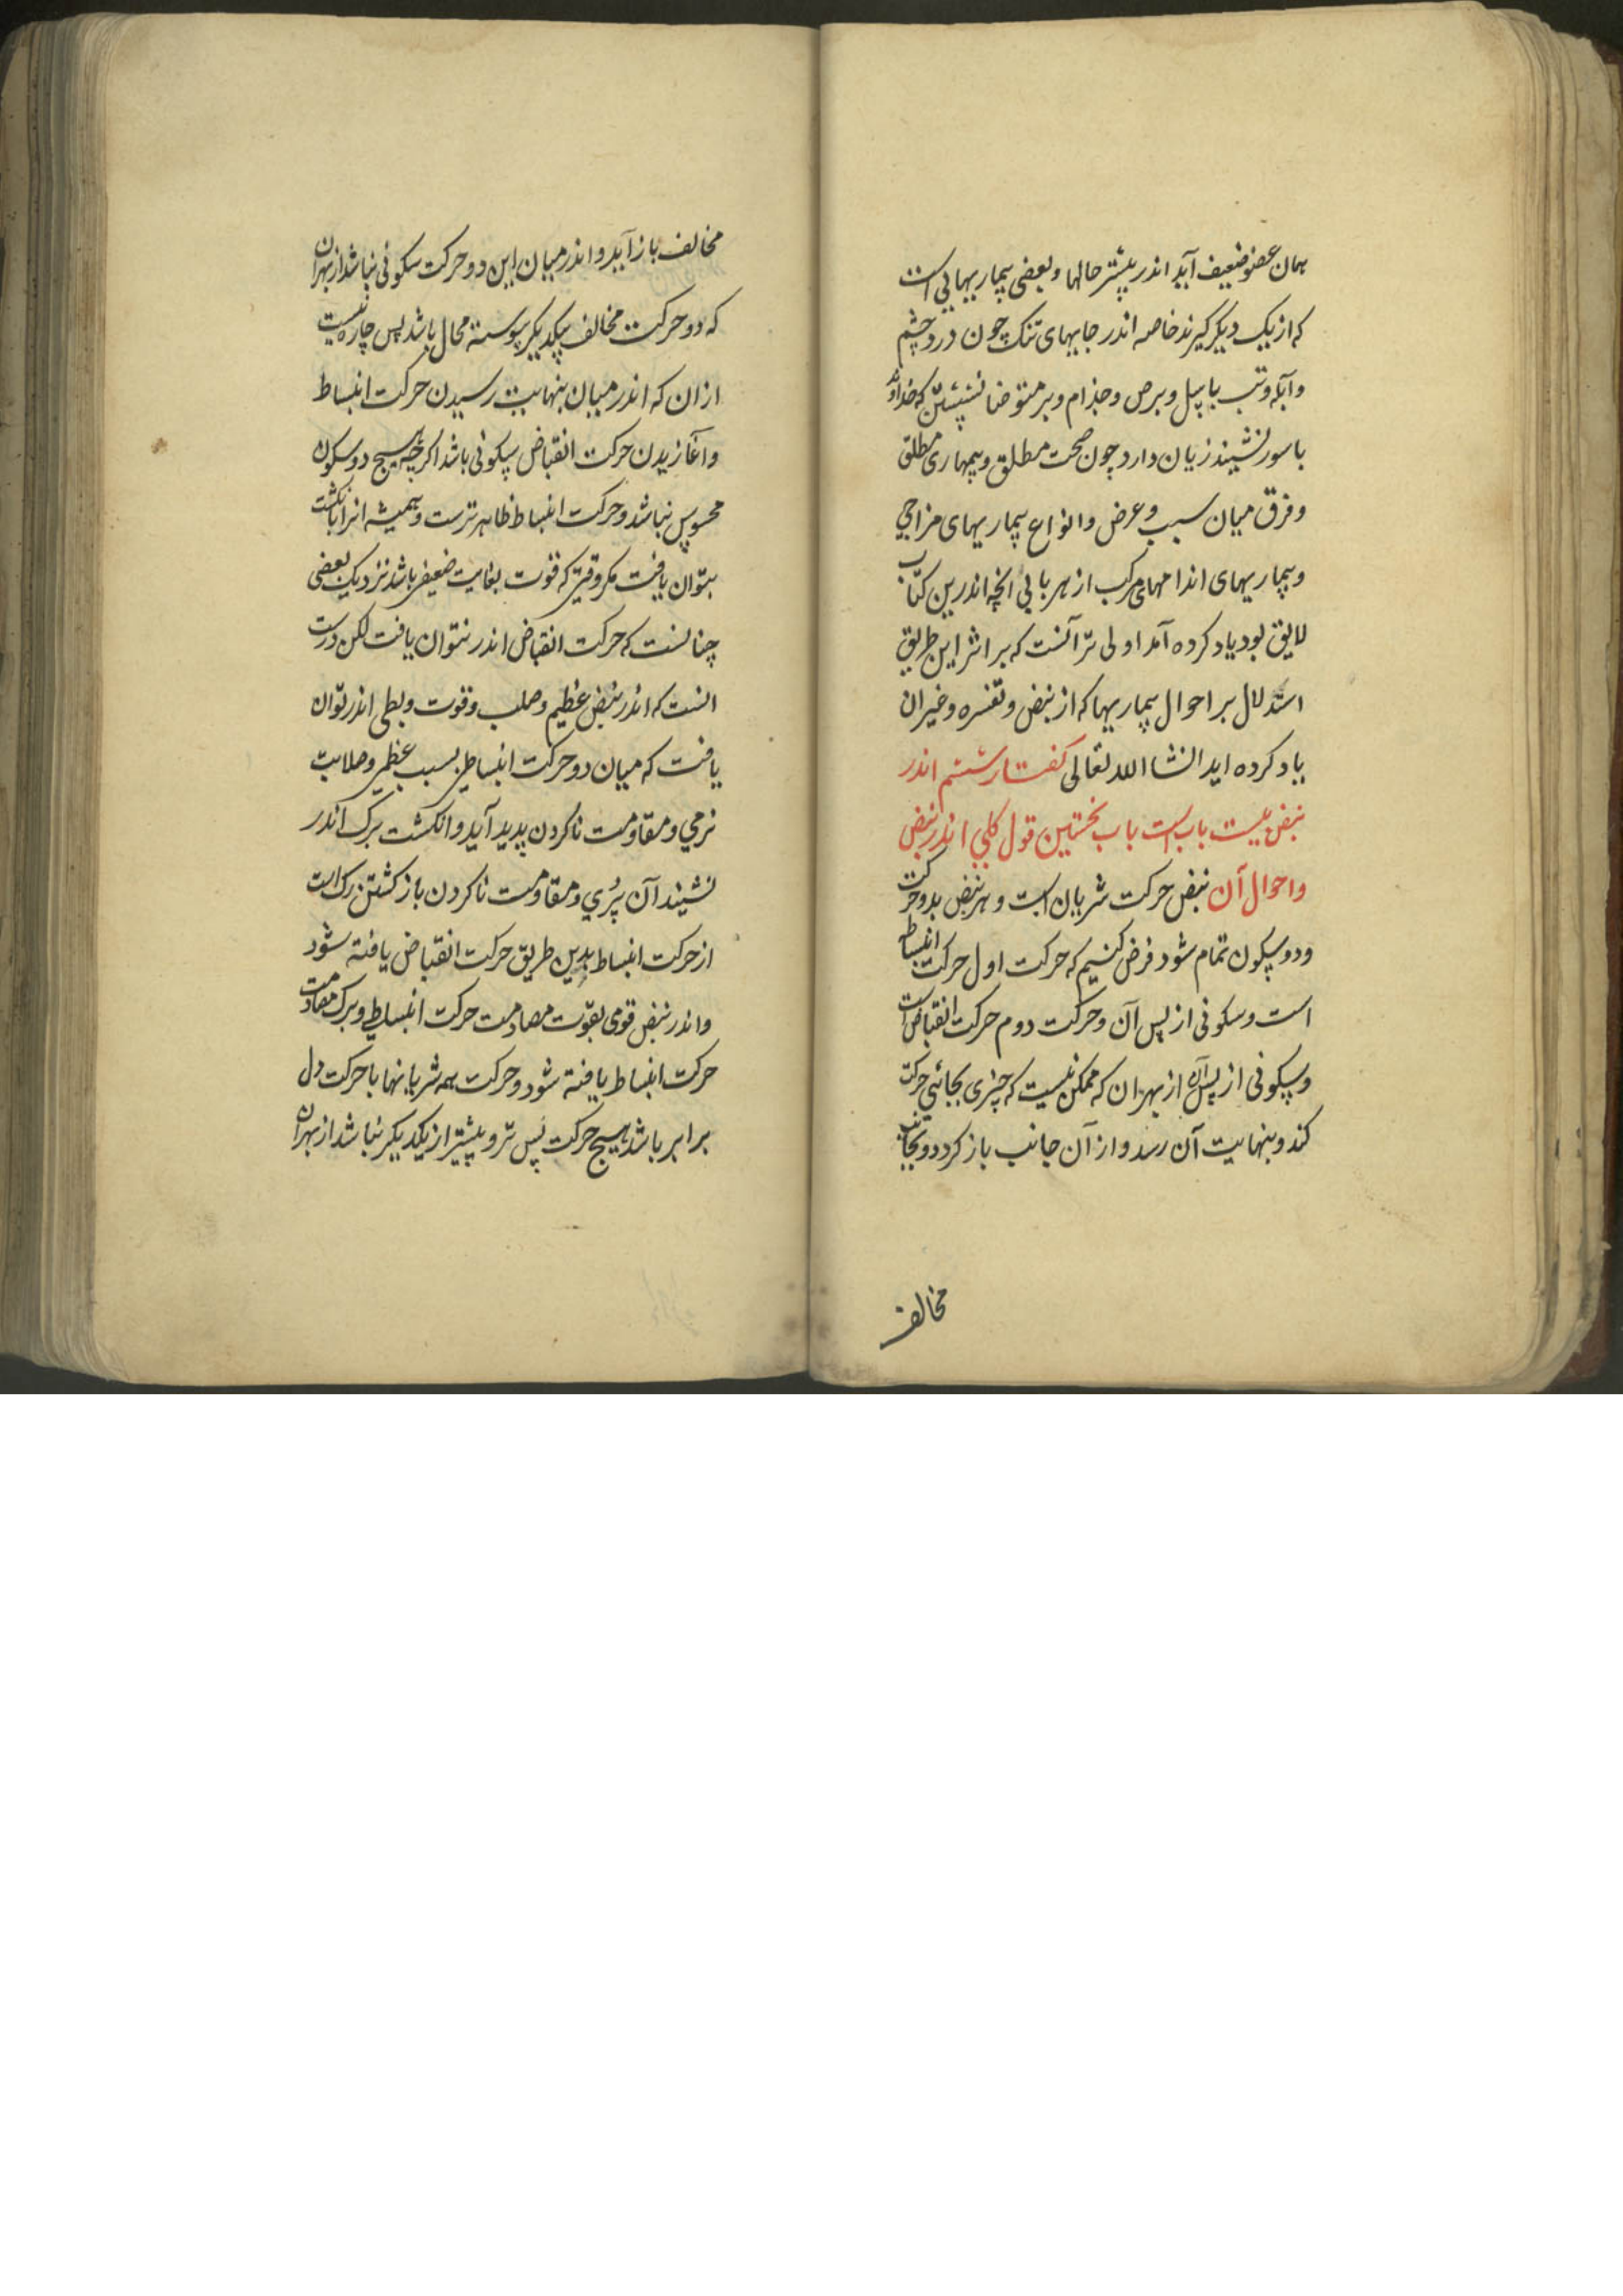 همان عضو ضعیف آید اندر بیشتر حالها و بعضی بیماریهایی است
که از یک دیگر گیرند خاصه اندر جایهای تنک چون درد چشم
و آبله و تب با سل و برص و جذام و بر متوضا نشستن که خداوند
باسور نشیند زیان دارد چون صحت مطلق و بیماری مطلق
و فرق میان سبب و عرض و انواع بیماریهای مزاجی
و بیماریهای اندامهای مرکب از هر بابی انچه اندرین کتاب
لایق بود یاد کرده آمد اولی تر آنست که بر اثر این طریق
استدلال بر احوال بیماریها که از نبض و تفسره و غیران
یاد کرده اید انشا الله تعالی کفتار ششم اندر
نبض بیست باب است باب نخستین قول کلی اندر نبض
و احوال آن نبض حرکت شریان است و هر نبض بدو حرکت
و دو سکون تمام شود فرض کنیم که حرکت اول حرکت انبساط
است و سکونی از پس آن و حرکت دوم حرکت انقباض است
و سکونی از پس آن از بهر ان که ممکن نیست که چیزی بجائی حرکت
کند و بنهایت آن رسد و از آن جانب باز کردد و بجانب
مخالف
مخالف باز آید و اندر میان این دو حرکت سکونی نباشد از بهر ان
که دو حرکت مخالف بیکدیکر پیوسته محال باشد پس چاره نیست
ازان که اندر میان بنهایت رسیدن حرکت انبساط
و آغازیدن حرکت انقباض سکونی باشد اکرچه هیچ دو سکون
محسوس نباشد و حرکت انبساط ظاهرترست و همیشه انرا بانکشت
بتوان یافت مکر وقتی که قوت بغایت ضعیف باشد نزدیک بعضی
چنانست که حرکت انقباض اندر نتوان یافت لکن درست
انست که اندر نبض عظیم و صلب و قوت و بطی اندر توان
یافت که میان دو حرکت انبساطی بسبب عظمی و صلابت
نرمی و مقاومت ناکردن پدید آید و انکشت برک اندر
نشیند آن پری و مقاومت ناکردن باز کشتن رک است
از حرکت انبساط بدین طریق حرکت انقباض یافته شود
و اندر نبض قوی بقوت مصادمت حرکت انبساطی و برک مصادمت
حرکت انبساط یافته شود و حرکت همه شریانها با حرکت دل
برابر باشد هیچ حرکت پس تر و پیشتر از یکدیکر نباشد از بهر ان